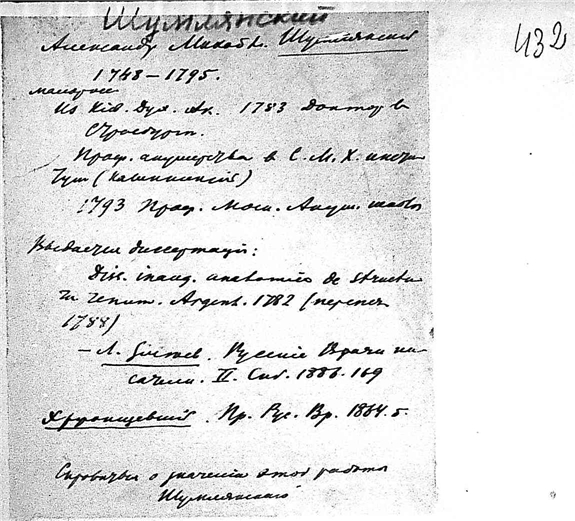 Шумлянский
432
Александр Михайл. Шумлянский
1748 – 1795.
малоросс
Из Киев. Дух. Ак. 1783 Доктор в
Страсбург.
Проф. акушерства в С. М. Х. инсти
тут (Калинкинский)
1793 Проф. Моск. Акуш. школы
диссертация:
Diss. inaug. anatomic de structu
ra renum. Argent. 1782 (перепеч
1788)
– Л. Змеев. Русские Врачи пи-
сатели. II. Спб. 1886. 169
. Пр. Рус. Вр. 1864. 5.
о значении этой работы
Шумлянского